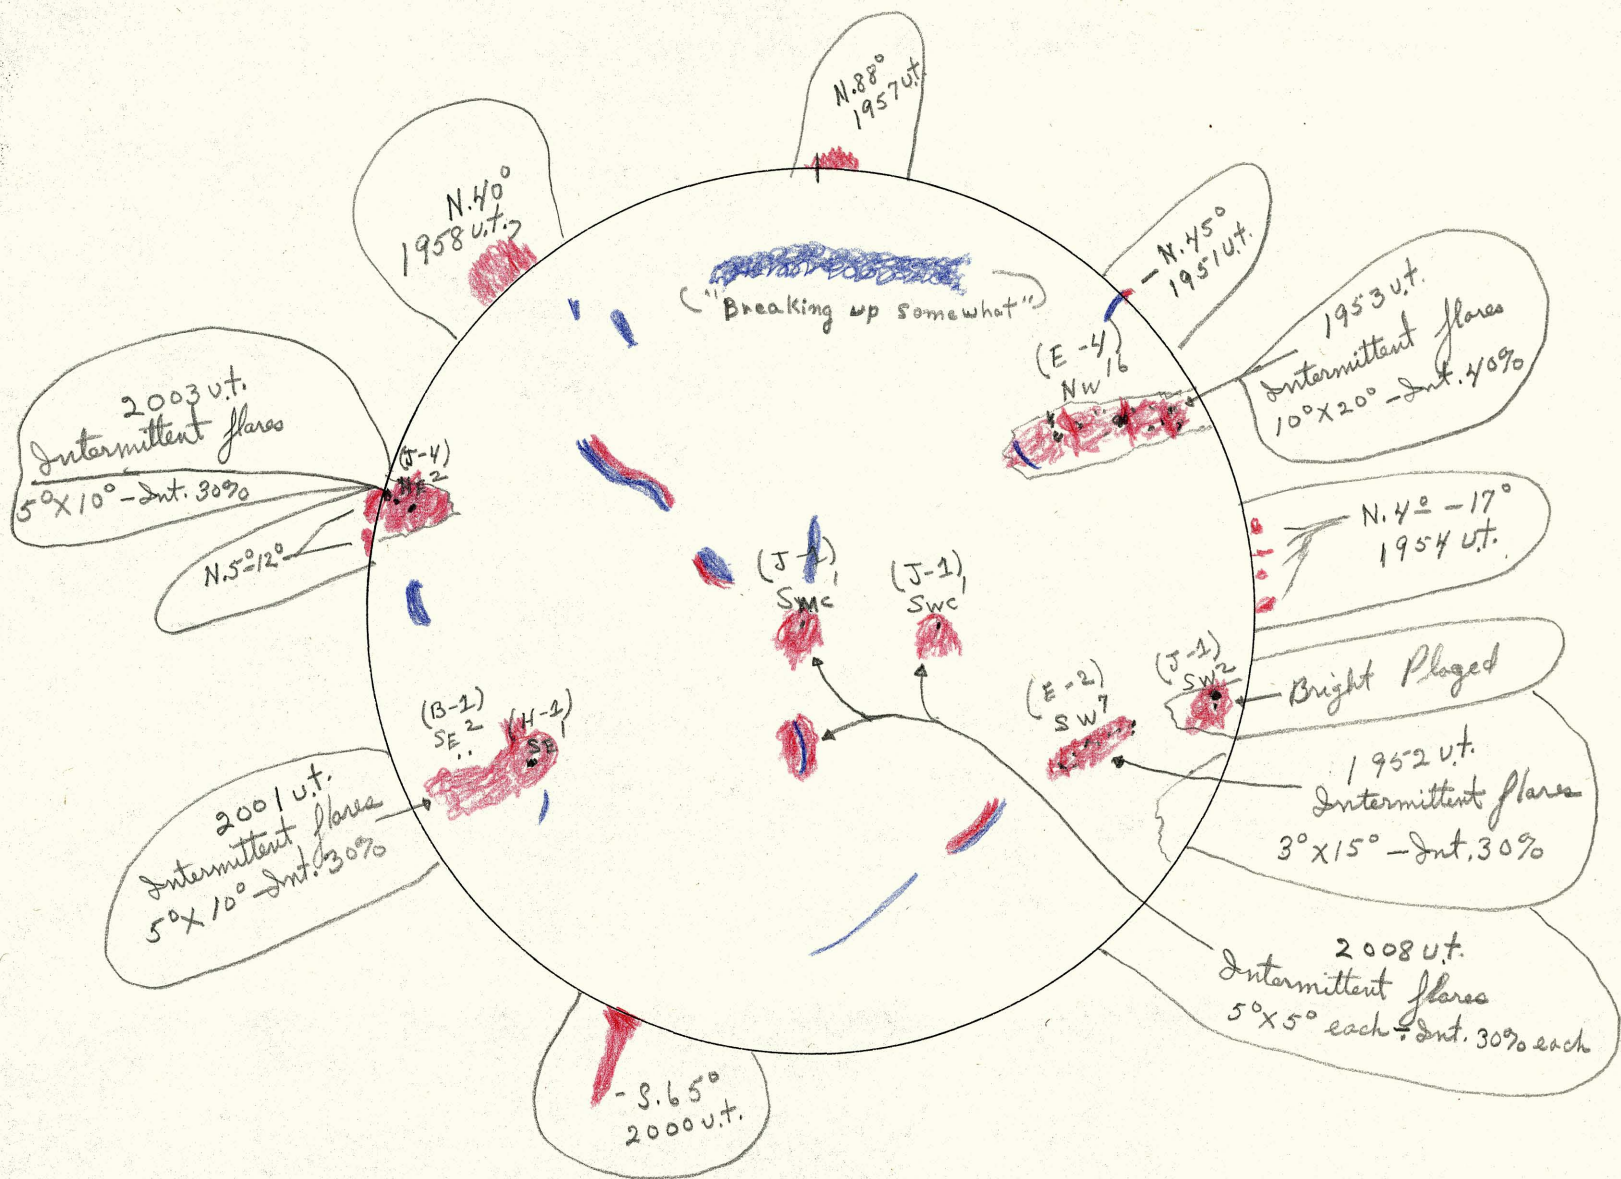 N.88°
1957 u.t.
N.40°
1958 u.t.
- N.45°
1951 u.t.
("Breaking up somewhat")
1953 u.t.
Intermittent flares
10° X 20° - Int. 40%
(E-4)
NW 16
2003 u.t.
Intermittent flares
5° X 10° - Int. 30%
(J-4)
NE 2
N.5°-12°
N. 4° - 17°
1954 u.t.
(J-1)
SWC 1
(J-1)
SWC 1
(J-1)
SW 2
Bright Plaged
(E-2)
SW 7
1952 u.t.
Intermittent flares
3° X 15° - Int. 30%
(B-1)
SE 2
(H-1)
SE 1
2001 u.t.
Intermittent flares
5° X 10° - Int. 30%
2008 u.t.
Intermittent flares
5° X 5° each - Int. 30% each
- S.65°
2000 u.t.